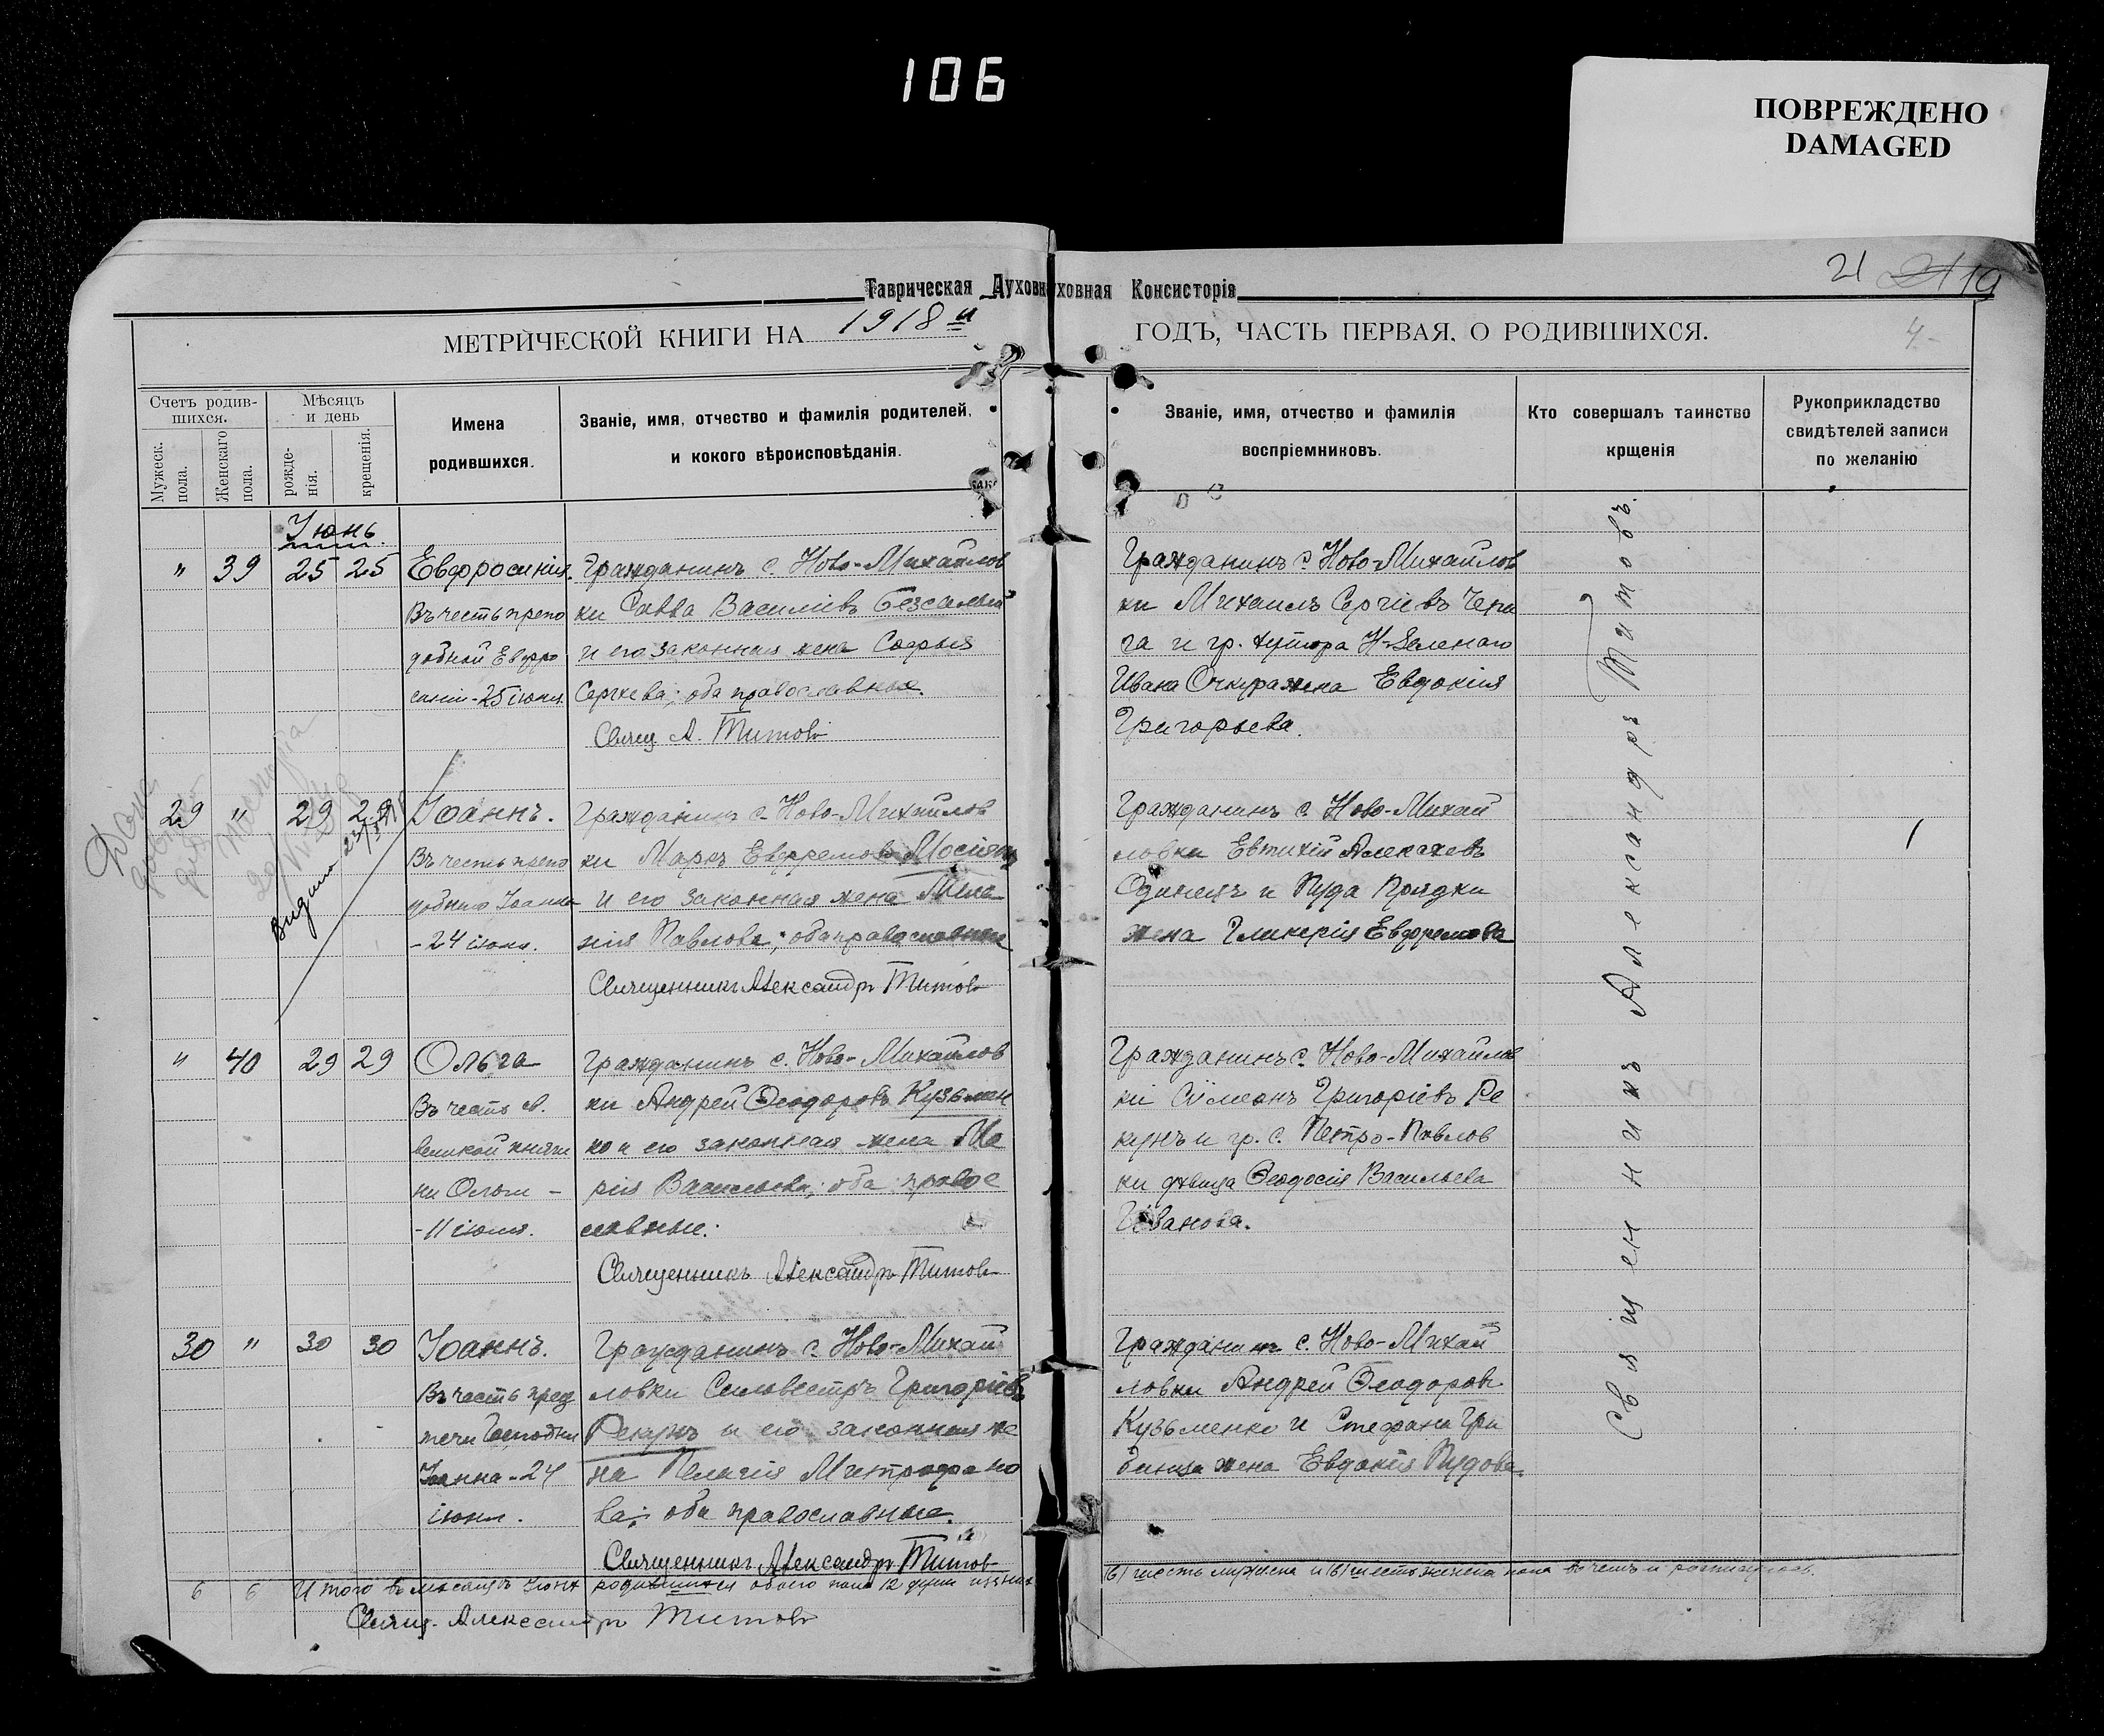 106
ПОВРЕЖДЕНО
DAMAGED
21 21 19
Таврическая Духовн ховная Консисторія
МЕТРИЧЕСКОЙ КНИГИ НА 1918 й ГОДЪ, ЧАСТЬ ПЕРВАЯ, О РОДИВШИХСЯ.
4
Счетъ родив-
шихся.
Мужеск.
пола.
Женскаго
пола.
Мѣсяцъ
и день
рожде-
нія.
крещенія.
Имена
родившихся.
Званіе, имя, отчество и фамилія родителей,
и кокого вѣроисповѣданія.
Званіе, имя, отчество и фамилія
воспріемниковъ.
Кто совершалъ таинство
крщенія
Рукоприкладство
свидѣтелей записи
по желанію
Іюнь.
" 39 25 25
Евфросинія.
Въ честь препо
добной Евфро
синіи - 25 іюня.
Гражданинъ с. Ново-Михайлов
ки Савва Василіевъ
и его законная жена Софья
Сергѣева; оба православные.
Свящ А. Титовъ
Гражданинъ с. Ново-Михайлов
ки Михаилъ Сергіевъ Чепи
га и гр. хутора Н-Зеленаго
Ивана жена Евдокія
Григорьева.
29 " 29 29
Выдано
Іоаннъ.
Въ честь препо
добнаго Іоанна
- 24 іюня.
Гражданинъ с. Ново-Михайлов
ки Маркъ Евфремовъ
и его законная жена Мела
нія Павлова; оба православные
Священникъ Александръ Титовъ
Гражданинъ с. Ново-Михай
ловки Евтихій Алексѣевъ
Одинецъ и Пуда Прядки
жена Гликерія Евфремова
" 40 29 29
Ольга
Въ честь св.
великой княги
ни Ольги -
- 11 іюля.
Гражданинъ с. Ново-Михайлов
ки Андрей Ѳеодоровъ Кузьмен
ко и его законная жена Ма
рія Васильева; оба правос
лавные.
Священникъ Александръ Титовъ
Гражданинъ с. Ново-Михайлов
ки Симеонъ Григоріевъ Ре
кунъ и гр. с. Петро-Павлов
ки дѣвица Ѳеодосія Васильева
Иванова.
30 " 30 30
Іоаннъ.
Въ честь пред
течи Господня
Іоанна - 24
іюня.
Гражданинъ с. Ново-Михай
ловки Сильвестръ Григоріевъ
Рекунъ и его законная же
на Пелагія Митрофано
ва; оба православные.
Священникъ Александръ Титовъ
Гражданинъ с. Ново-Михай
ловки Андрей Ѳеодоровъ
Кузьменко и Стефана Гри
жена Евдокія Пудова.
Священникъ Александръ Титовъ.
6 6 Итого въ мѣсяцѣ Іюнѣ родившихся обоего пола 12 душъ изъ нихъ
(6) шесть мужеска и (6) шесть женска пола въ чемъ и росписуюсь.
Свящ. Александръ Титовъ